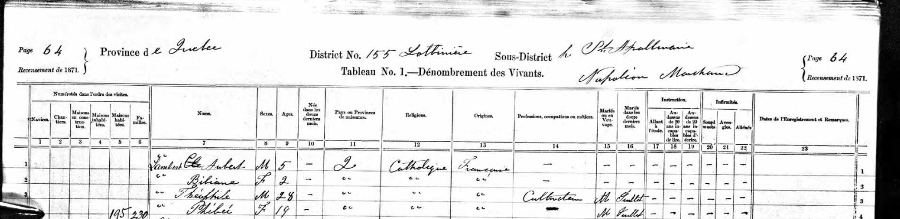 Page 64 Province de Quebec District No. 155 Lotbinière Sous-District h St. Apollinaire Page 64
Recensement de 1871. Tableau No. 1.—Dénombrement des Vivants. Napoléon Marchand Recensement de 1871.
Numérotés dans l'ordre des visites. Noms. Sexe. Ages. Née dans les douze derniers mois. Pays ou Province de naissance. Religions. Origine. Professions, occupations ou métiers. Mariés ou en Veuvage. Mariés dans les douze derniers mois. Instruction. Infirmités. Dates de l'Enregistrement et Remarques.
Navires. Chantiers. Maisons en construction. Maisons inhabitées. Maisons habitées. Familles. Allant à l'école. Sourds muets Aveugles. Aliénés
1 2 3 4 5 6 7 8 9 10 11 12 13 14 15 16 17 18 19 20 21 22 23
1 Lambert Aubert M 5 — Q Catholique Française — — — — — — — — — 1
2 " Bibiane F 2 — " " " — — — — — — — — — 2
3 " Théophile M 28 — " " " Cultivateur M Juillet — — — — — — 3
4 195 230 " Phébée F 19 — " " " — M Juillet — — — — — — 4